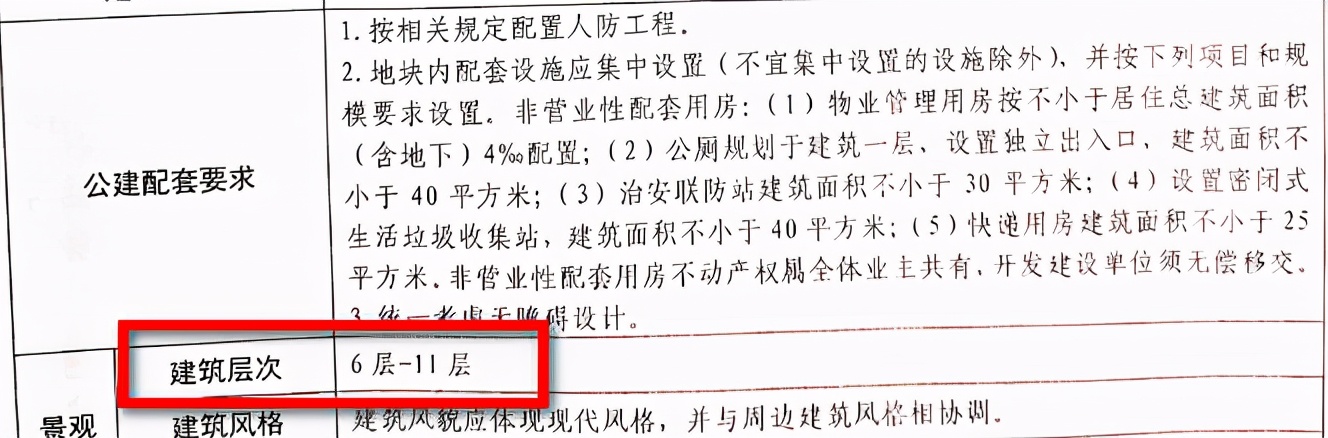 1. 按相关规定配置人防工程.
2. 地块内配套设施应集中设置（不宜集中设置的设施除外），并按下列项目和规
模要求设置。非营业性配套用房：（1）物业管理用房按不小于居住总建筑面积
（含地下）4‰配置；（2）公厕规划于建筑一层、设置独立出入口，建筑面积不
公建配套要求
小于 40 平方米；（3）治安联防站建筑面积不小于 30 平方米；（4）设置密闭式
生活垃圾收集站，建筑面积不小于 40 平方米；（5）快递用房建筑面积不小于 25
平方米. 非营业性配套用房不动产权属全体业主共有，开发建设单位须无偿移交。
3. 统一考虑无障碍设计。
建筑层次 6 层-11 层
景观
建筑风格 建筑风貌应体现现代风格，并与周边建筑风格相协调.